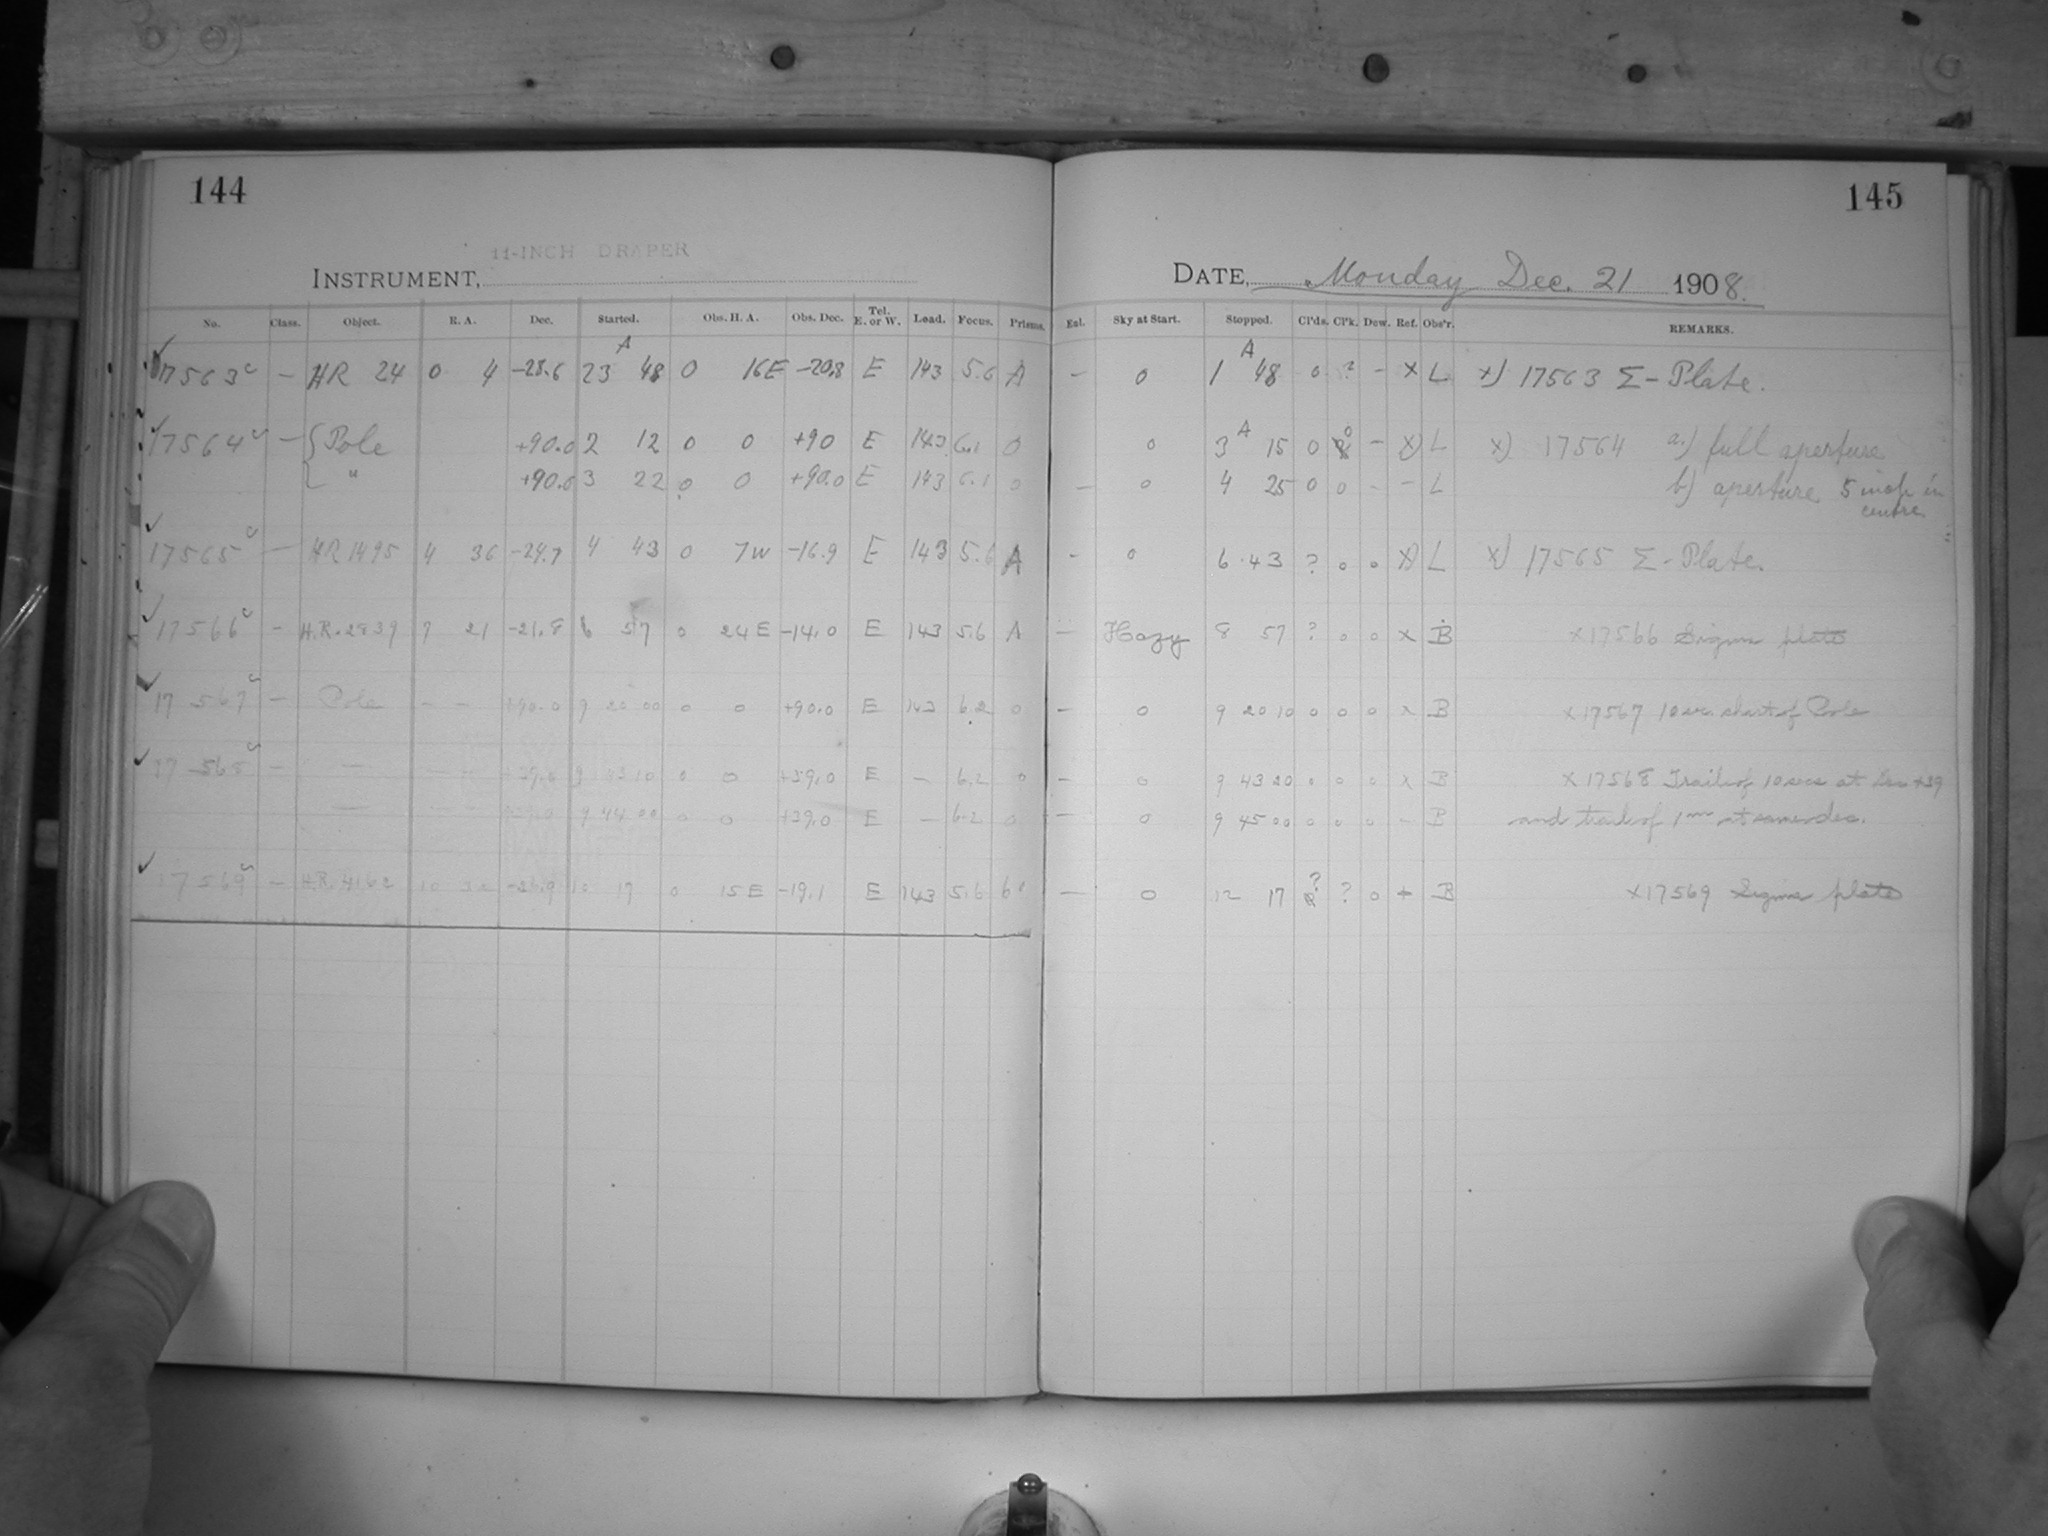 144
11-INCH DRAPER
INSTRUMENT,
No. Class. Object. R. A. Dec. Started. Obs. H. A. Obs. Dec. Tel. E. or W. Load. Focus. Prisms.
17563 c — HR 24 0 4 -28.6 23 A 48 0 16E -20.8 E 143 5.6 A
17564 c — { Pole +90.0 2 12 0 0 +90 E 143 6.1 0
" +90.0 3 22 0 0 +90.0 E 143 6.1 0
17565 c — HR 1495 4 36 -24.7 4 43 0 7W -16.9 E 143 5.6 A
17566 c — H.R. 2839 7 21 -21.8 6 57 0 24E -14.0 E 143 5.6 A
17567 c — Pole — — +90.0 9 20 00 0 0 +90.0 E 143 6.2 0
17568 c — — +39.0 9 43 10 0 0 +39.0 E — 6.2 0
— 9 44 00 0 0 +39.0 E — 6.2 0
17569 c — H.R. 10 -26.9 10 17 0 15E -19.1 E 143 5.6
145
DATE, Monday Dec. 21 1908.
Eal. Sky at Start. Stopped. Cl'ds. Cl'k. Dew. Ref. Obs'r. REMARKS.
— 0 1 A 48 0 ? — x L x) 17563 Σ-Plate.
0 3 A 15 0 0 — x) L x) 17564 a.) full aperture
— 0 4 25 0 0 — — L b) aperture 5 inch in centre
— 0 6 43 ? 0 0 x) L x) 17565 Σ-Plate.
— Hazy 8 57 ? 0 0 x B x 17566 Sigma plate
— 0 9 20 10 0 0 0 x B x 17567 10 sec. chart of Pole
— 0 9 43 20 0 0 0 x B x 17568 Trail of 10 secs at Dec +39
— 0 9 45 00 0 0 0 — B and trail of 1m at same dec.
— 0 12 17 ? ? 0 + B x 17569 Sigma plate